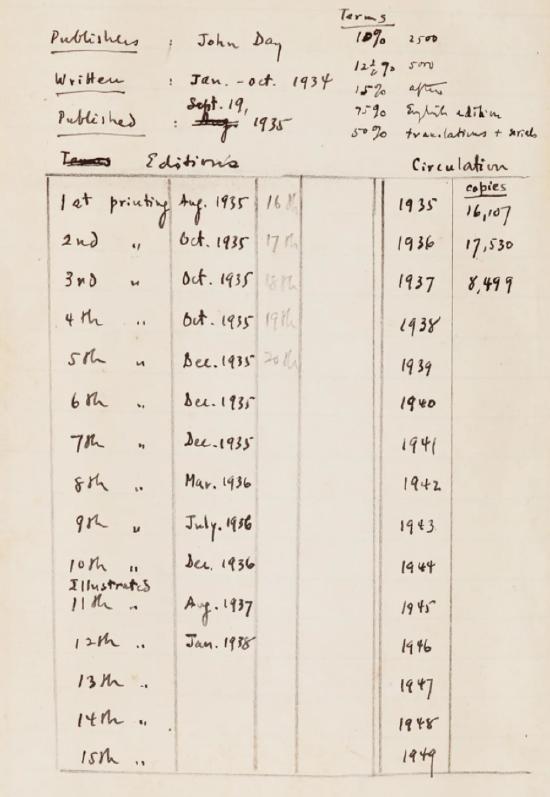 Terms
Publishers : John Day 10% 2500
12½% 5000
Written : Jan. - Oct. 1934 15% after
Sept. 19, 75% English edition
Published : Aug. 1935 50% translations + serials
Terms Editions Circulation
copies
1st printing Aug. 1935 16th 1935 16,107
2nd " Oct. 1935 17th 1936 17,530
3rd " Oct. 1935 18th 1937 8,499
4th " Oct. 1935 19th 1938
5th " Dec. 1935 20th 1939
6th " Dec. 1935 1940
7th " Dec. 1935 1941
8th " Mar. 1936 1942
9th " July. 1936 1943
10th " Dec. 1936 1944
Illustrated
11th " Aug. 1937 1945
12th " Jan. 1938 1946
13th " 1947
14th " 1948
15th " 1949